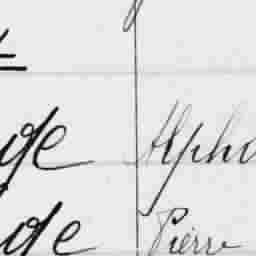 ge Alpho
de Pierre